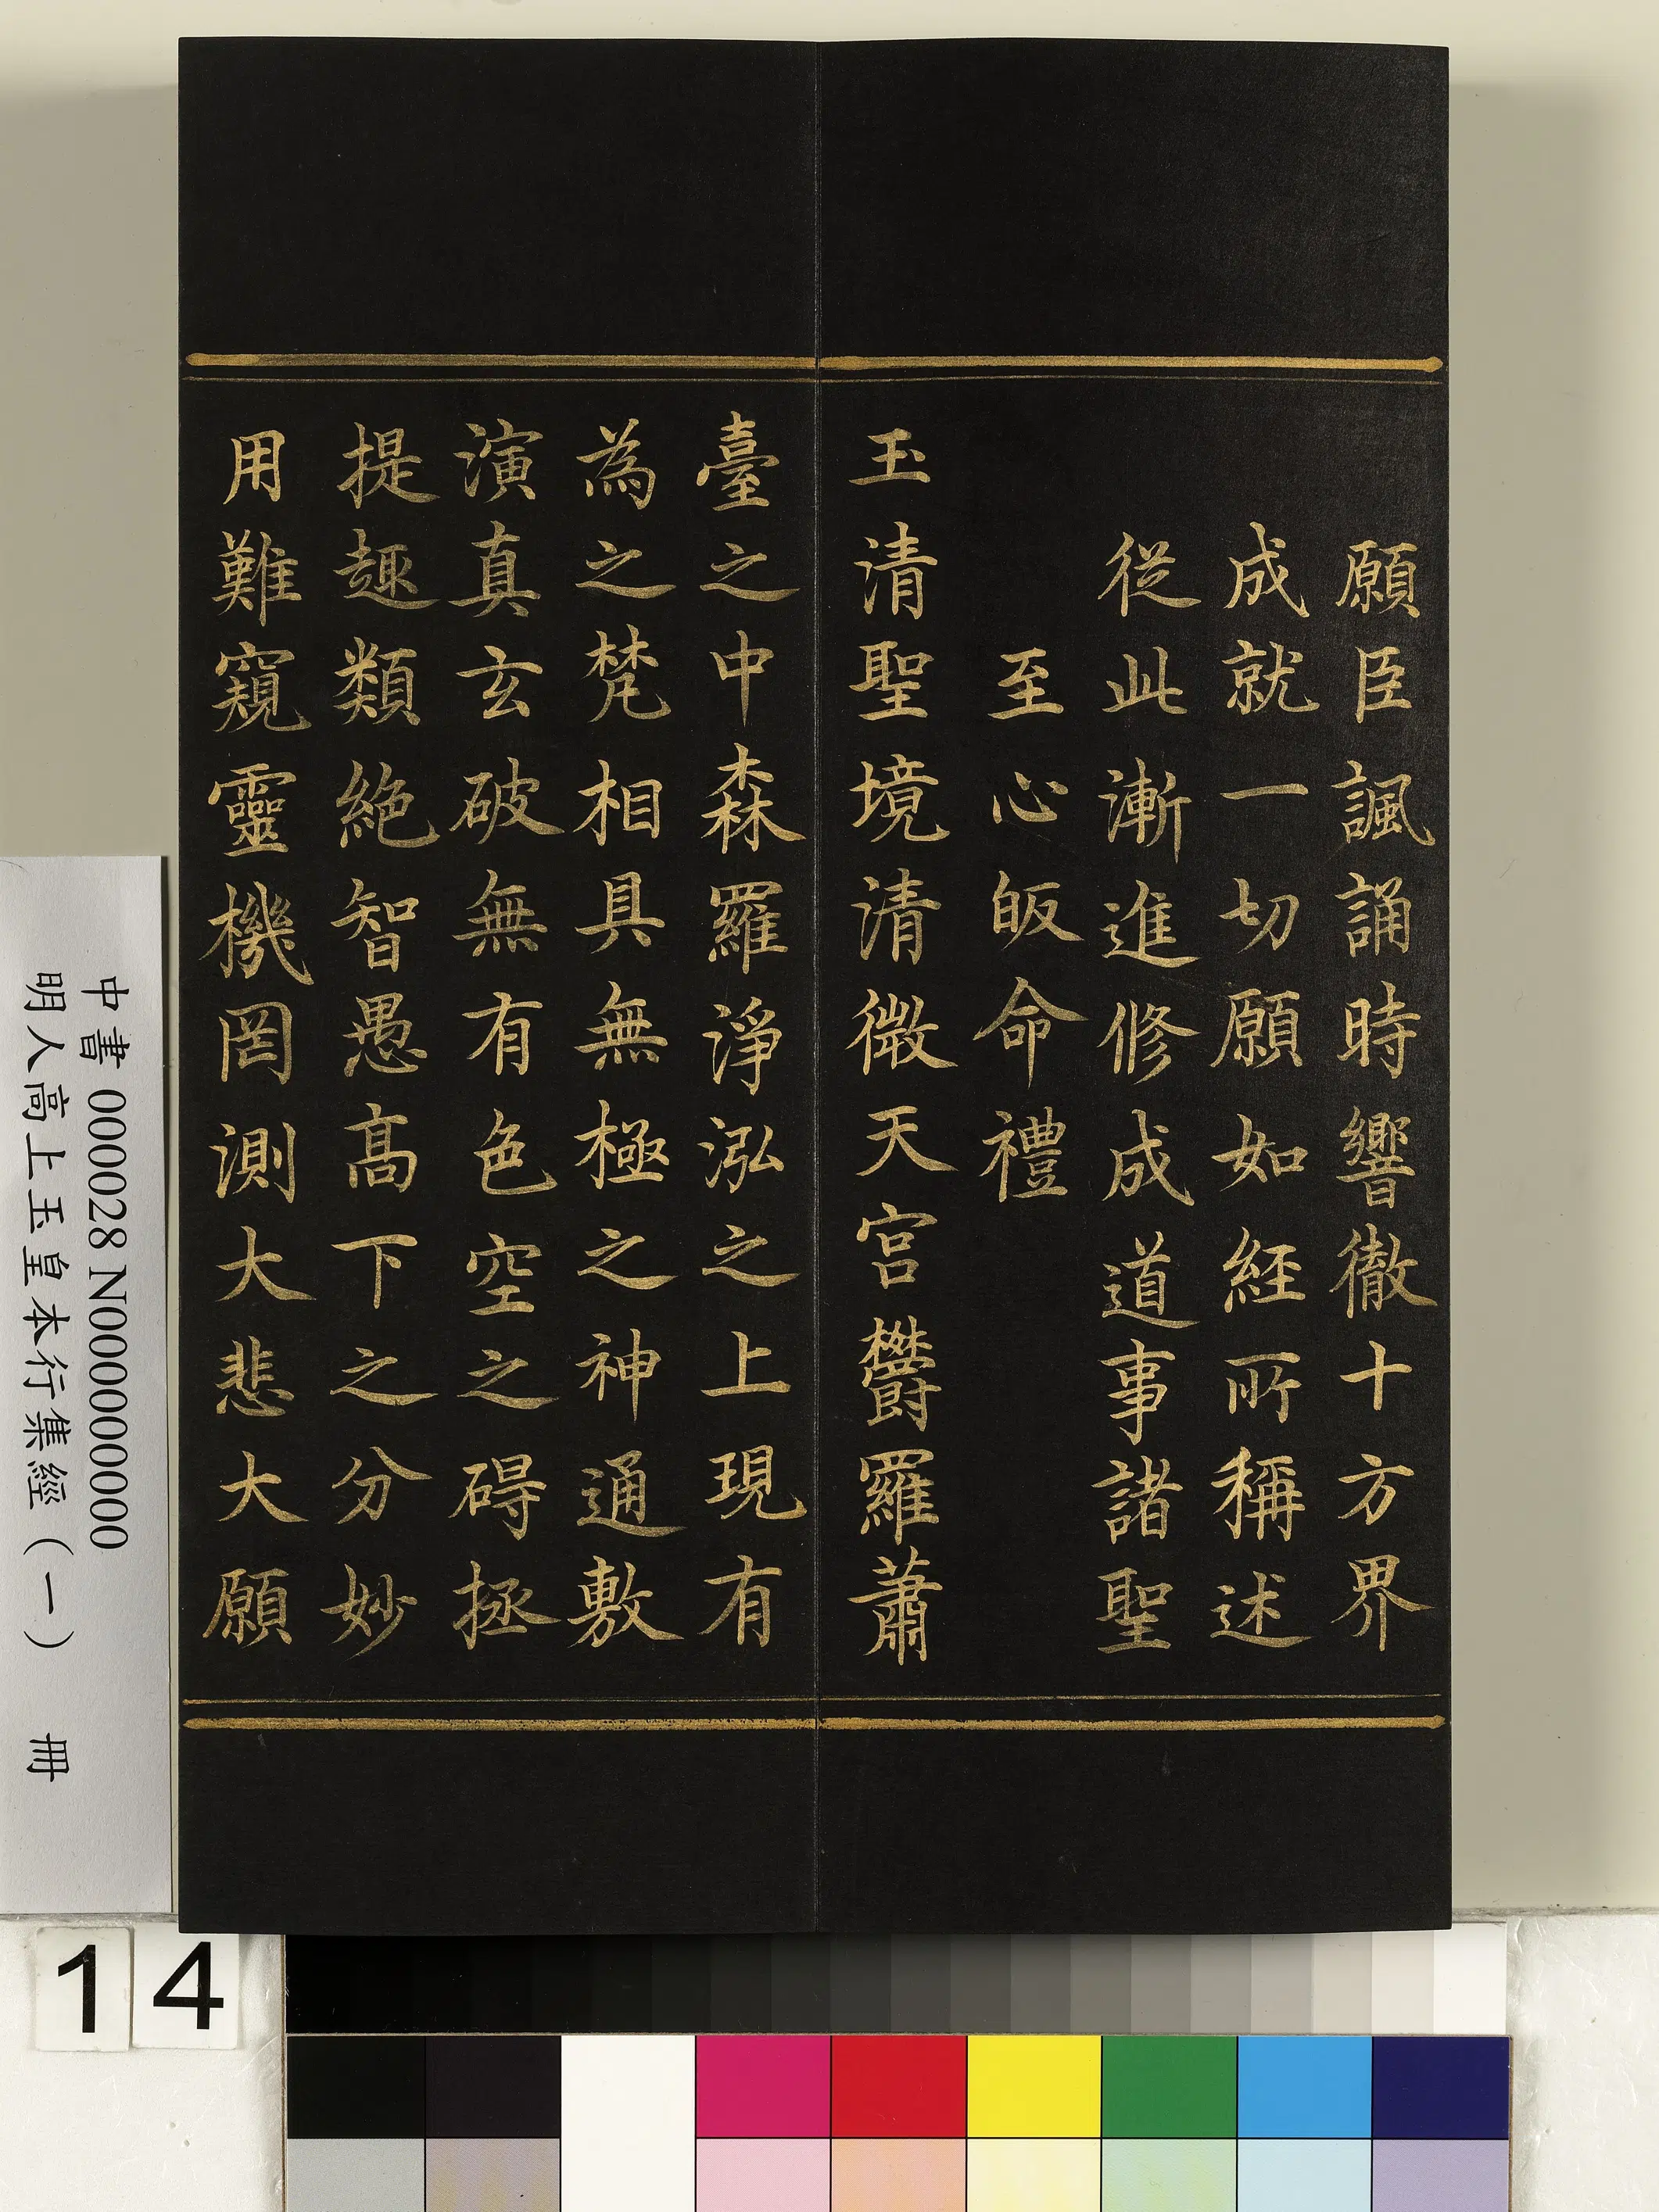 願臣諷誦時響徹十方界
成就一切願如經所稱述
從此漸進修成道事諸聖
至心皈命禮
玉清聖境清微天宮欝羅蕭
臺之中森羅淨泓之上現有
為之梵相具無極之神通敷
演真玄破無有色空之碍拯
提趣類絶智愚高下之分妙
用難窺靈機罔測大悲大願
中書 000028 N000000000
明人高上玉皇本行集經（一） 冊
14